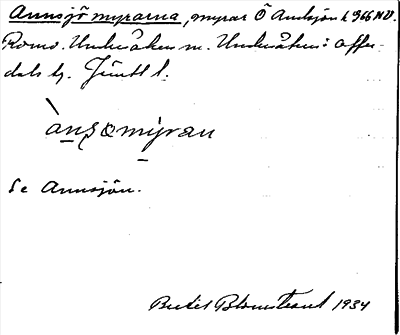 Annsjömyrarna, myrar Ö Annsjön k 966 NV.
Romo. Undersåkers sn. Undersåkers: o Offer-
dals tg. Jämtl l.
ànʂəmýran
Se Annsjön.
Bertil Blomstrand 1934